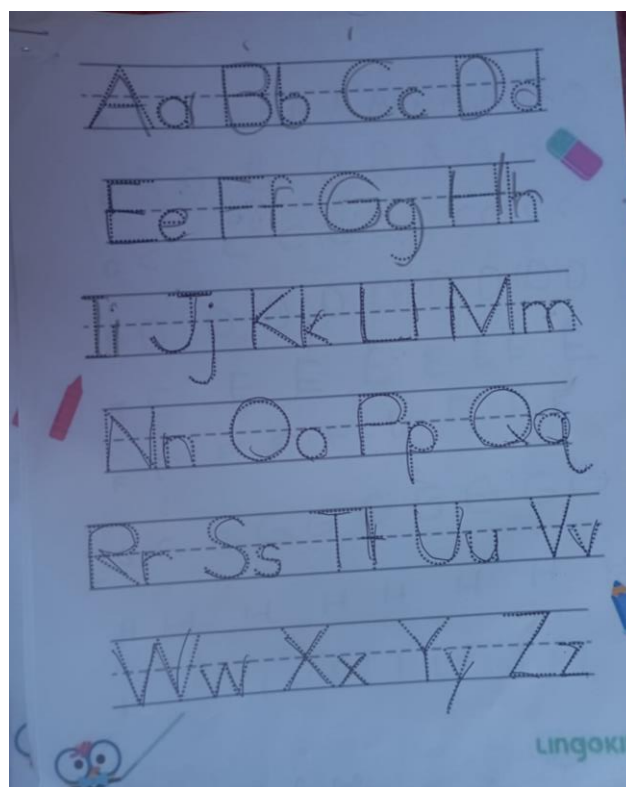 Aa Bb Cc Dd
Ee Ff Gg Hh
Ii Jj Kk Ll Mm
Nn Oo Pp Qq
Rr Ss Tt Uu Vv
Ww Xx Yy Zz
LINGOKI